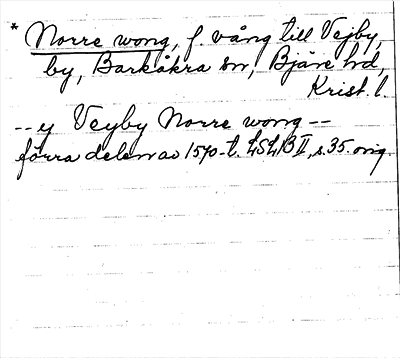 * Norre wong, f. vång till Vejby
by, Barkåkra sn, Bjäre hd,
Krist. l.
-- y Veyby Norre wong --
förra delen av 1570-t. LSLB II, s. 35. orig.